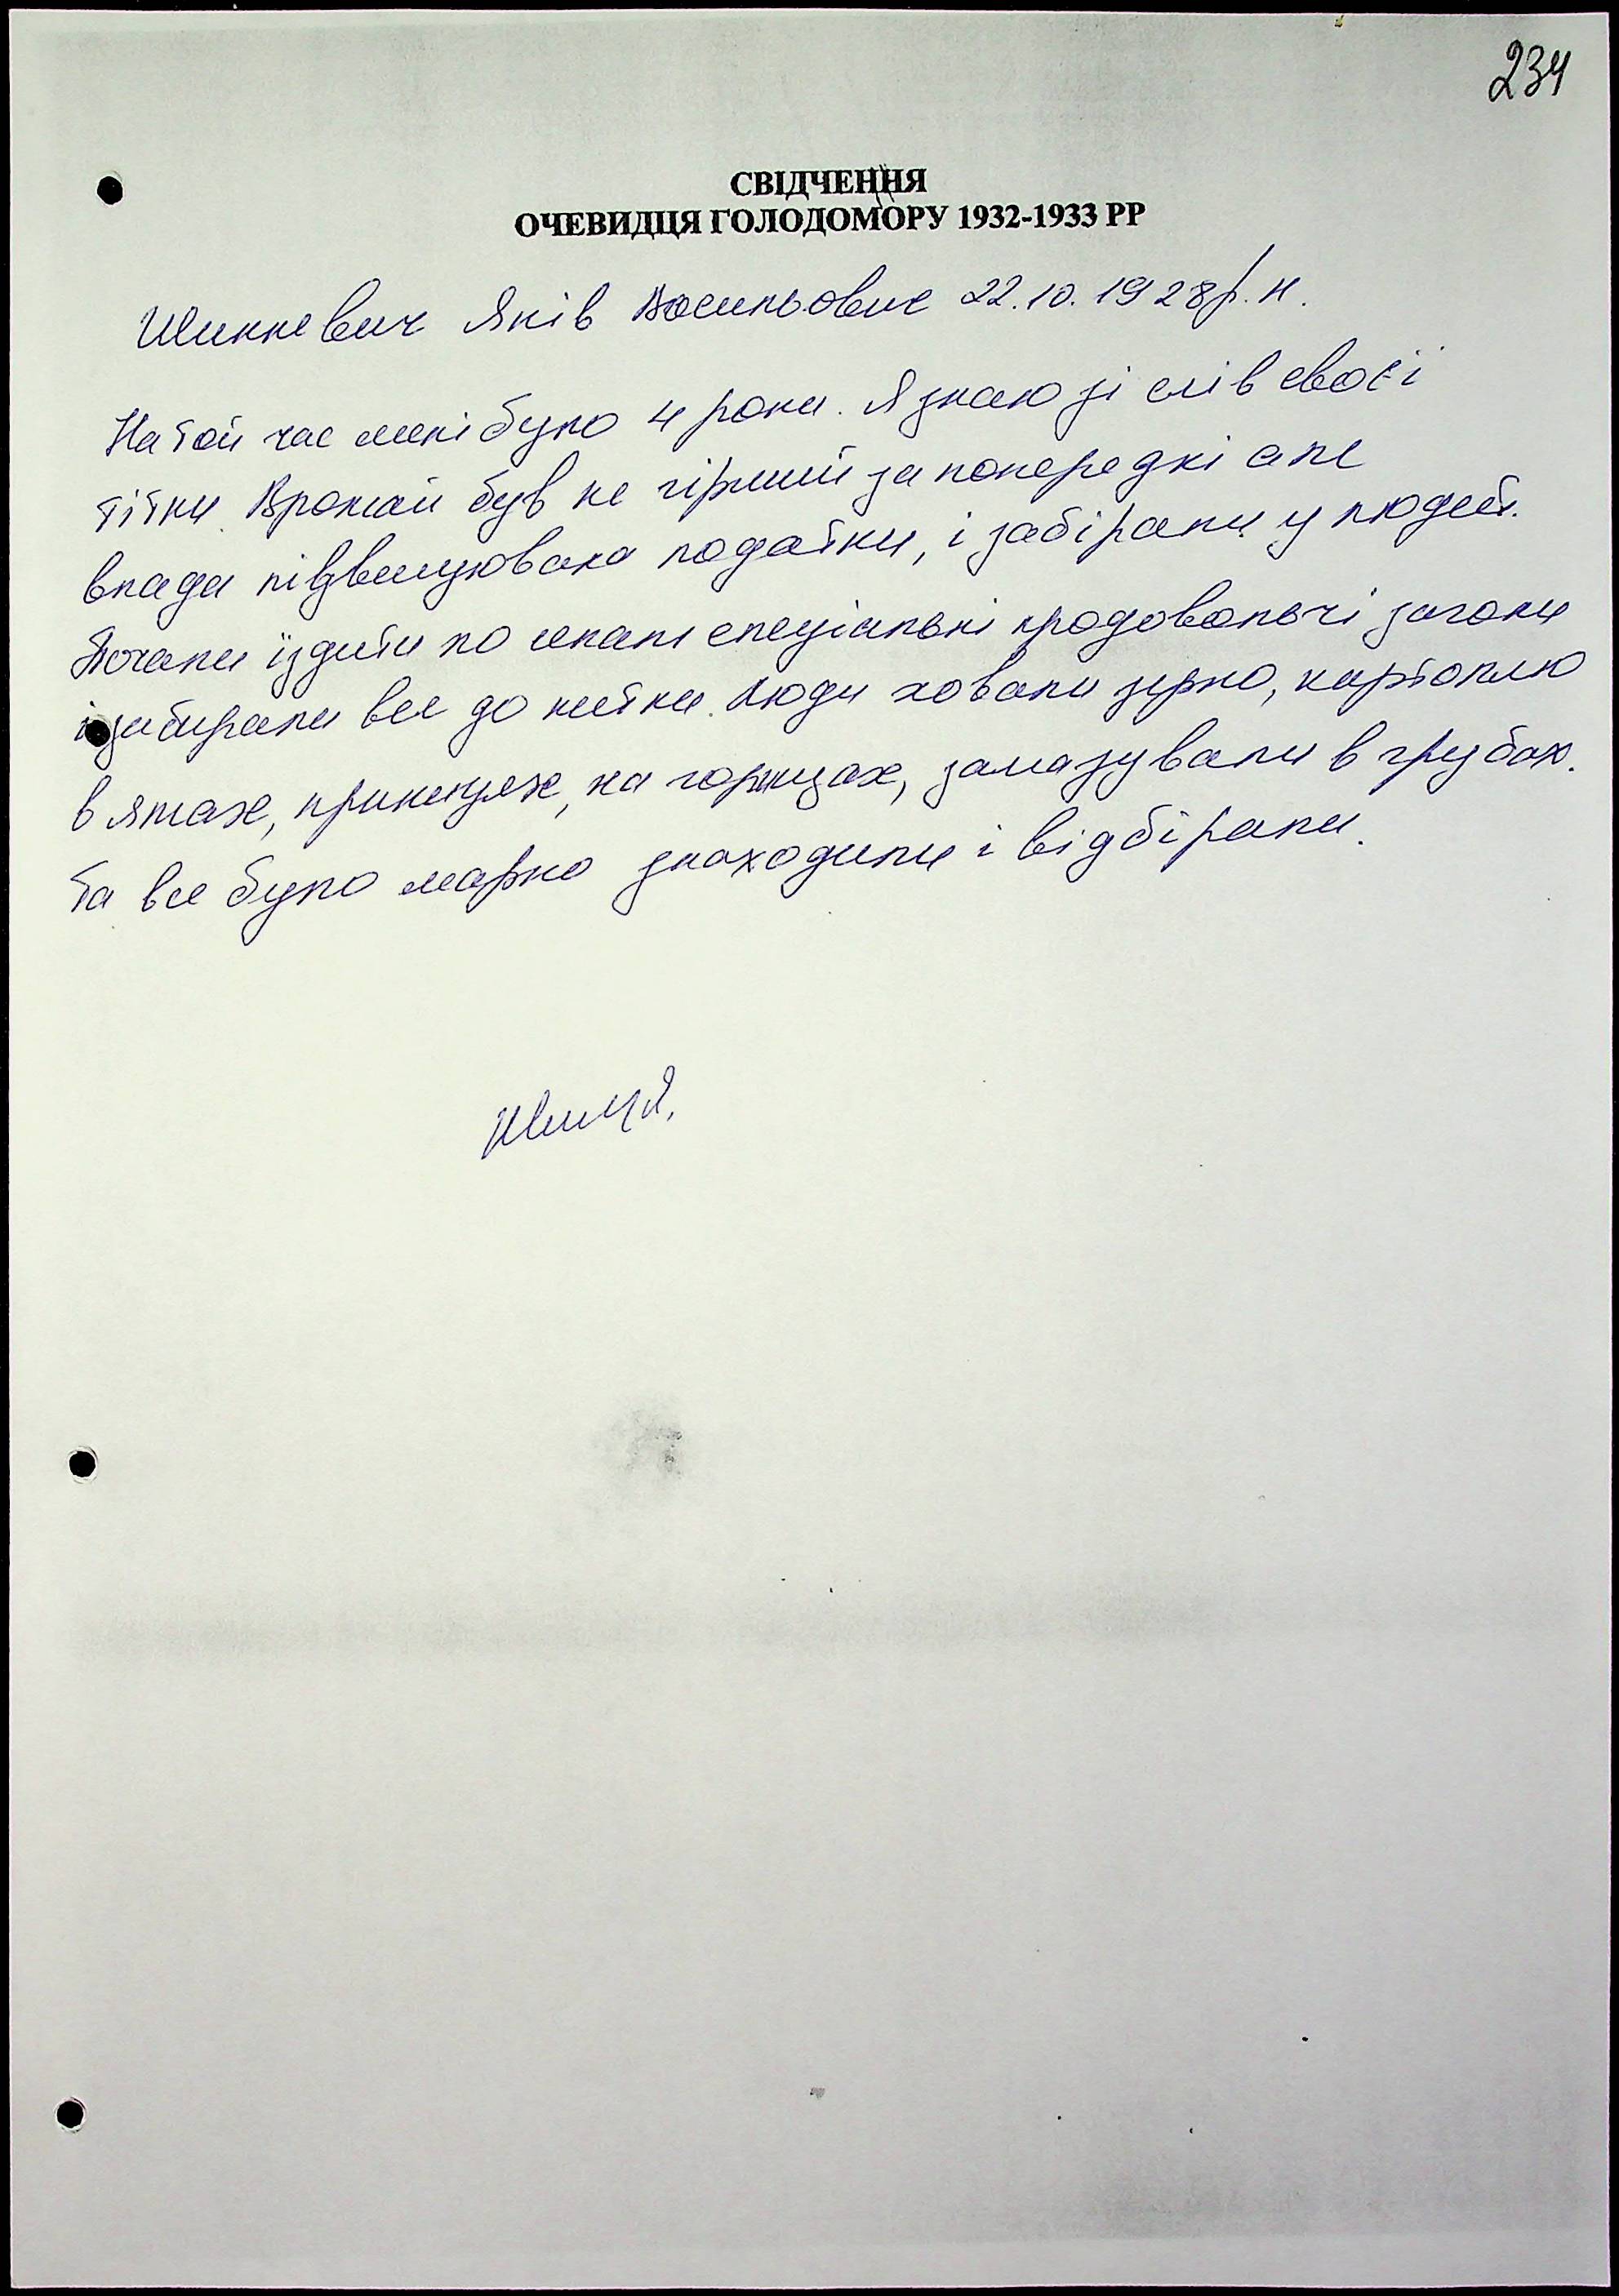 234
СВІДЧЕННЯ
ОЧЕВИДЦЯ ГОЛОДОМОРУ 1932-1933 РР
Шинкевич Яків Васильович 22.10.1928р.н.
На той час мені було 4 роки. Я знаю зі слів своєї
тітки. Врожай був не гірший за попередкі але
влада підвищювала податки, і забірали у людей.
Почали їздити по селам спеціальні продовольчі загони
і забирали все до нитки. Люди ховали зерно, картоплю
в ямах, криницях, на горищах, замазували в грубах.
Та все було марно знаходили і відбірали.